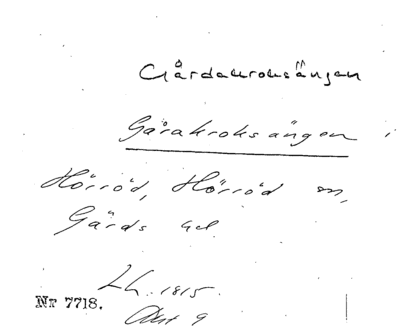 Gårdakroksängen
Gårakroksängen
Hörröd, Hörröd sn,
Gärds hd
Lh. 1815.
Akt 9
Nr 7718.